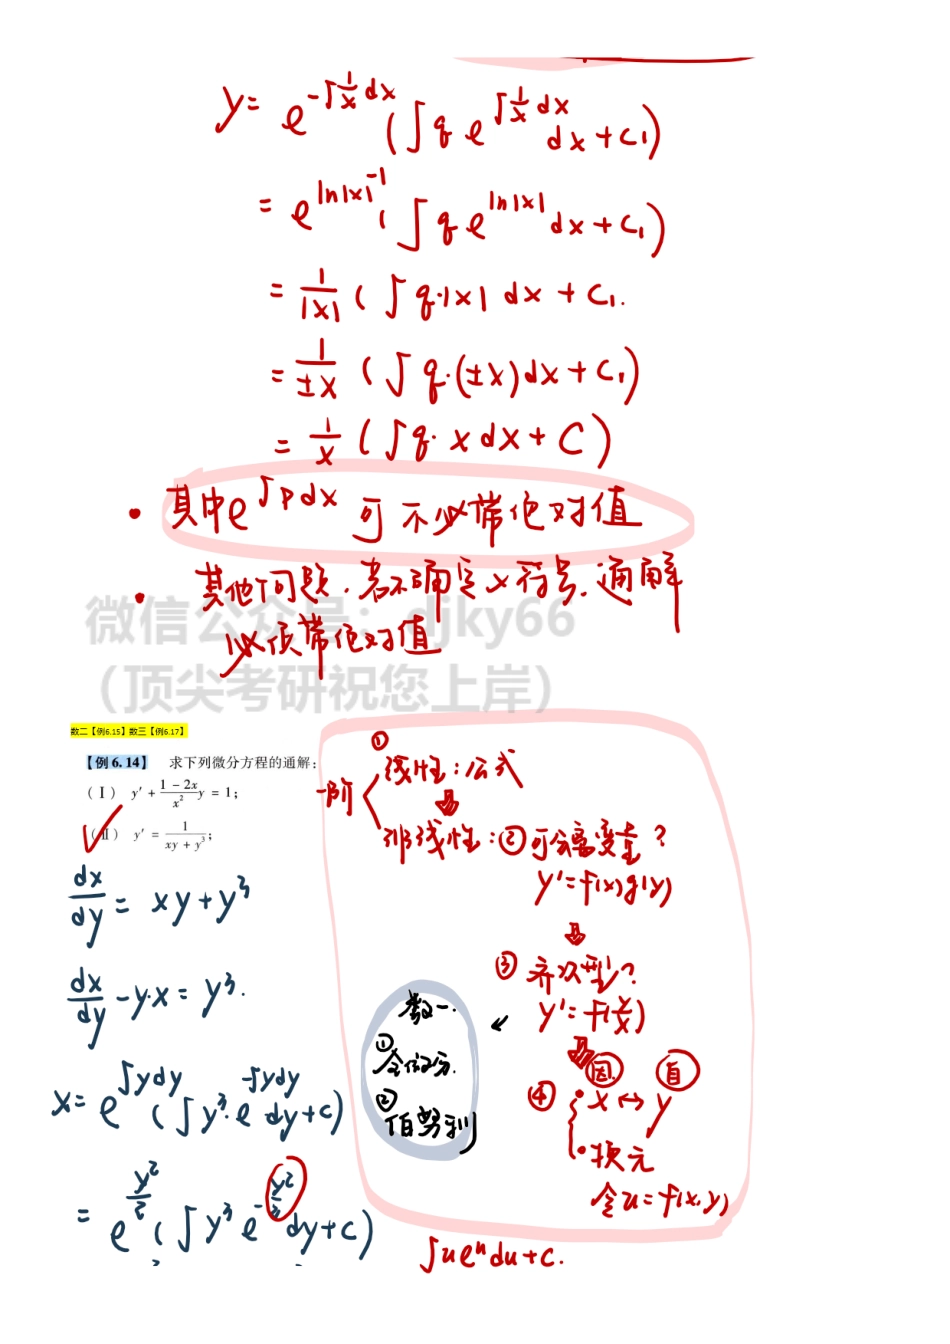 y= e^{-∫\frac{1}{x}dx}(∫q e^{∫\frac{1}{x}dx}dx+C₁)
= e^{ln|x|^{-1}}(∫q e^{ln|x|}dx+C₁)
= \frac{1}{|x|}(∫q·|x|dx+C₁.
= \frac{1}{±x}(∫q·(±x)dx+C₁)
= \frac{1}{x}(∫q·xdx+C)
• 其中e^{∫pdx} 可不必带绝对值
• 其他问题.若不确定x符号.通解
必须带绝对值
微信公众号：djky66
（顶尖考研祝您上岸）
数二【例6.15】数三【例6.17】
【例 6.14】 求下列微分方程的通解：
(Ⅰ) y′+\frac{1-2x}{x^2}y=1；
(Ⅱ) y′=\frac{1}{xy+y^3}；
\frac{dx}{dy}= xy+y^3
\frac{dx}{dy}-y·x= y^3.
x= e^{∫ydy}(∫y^3·e^{-∫ydy}dy+c)
= e^{\frac{y^2}{2}}(∫y^3 e^{-\frac{y^2}{2}}dy+c)
一阶
① 线性:公式
⇩
非线性:②可分离变量?
y'=f(x)g(y)
⇩
③ 齐次型?
y'=f(\frac{y}{x})
⇩
因 自
④ • x↔y
• 换元
令u=f(x,y)
数一.
①全微分.
②伯努利
∫ue^u du+c.